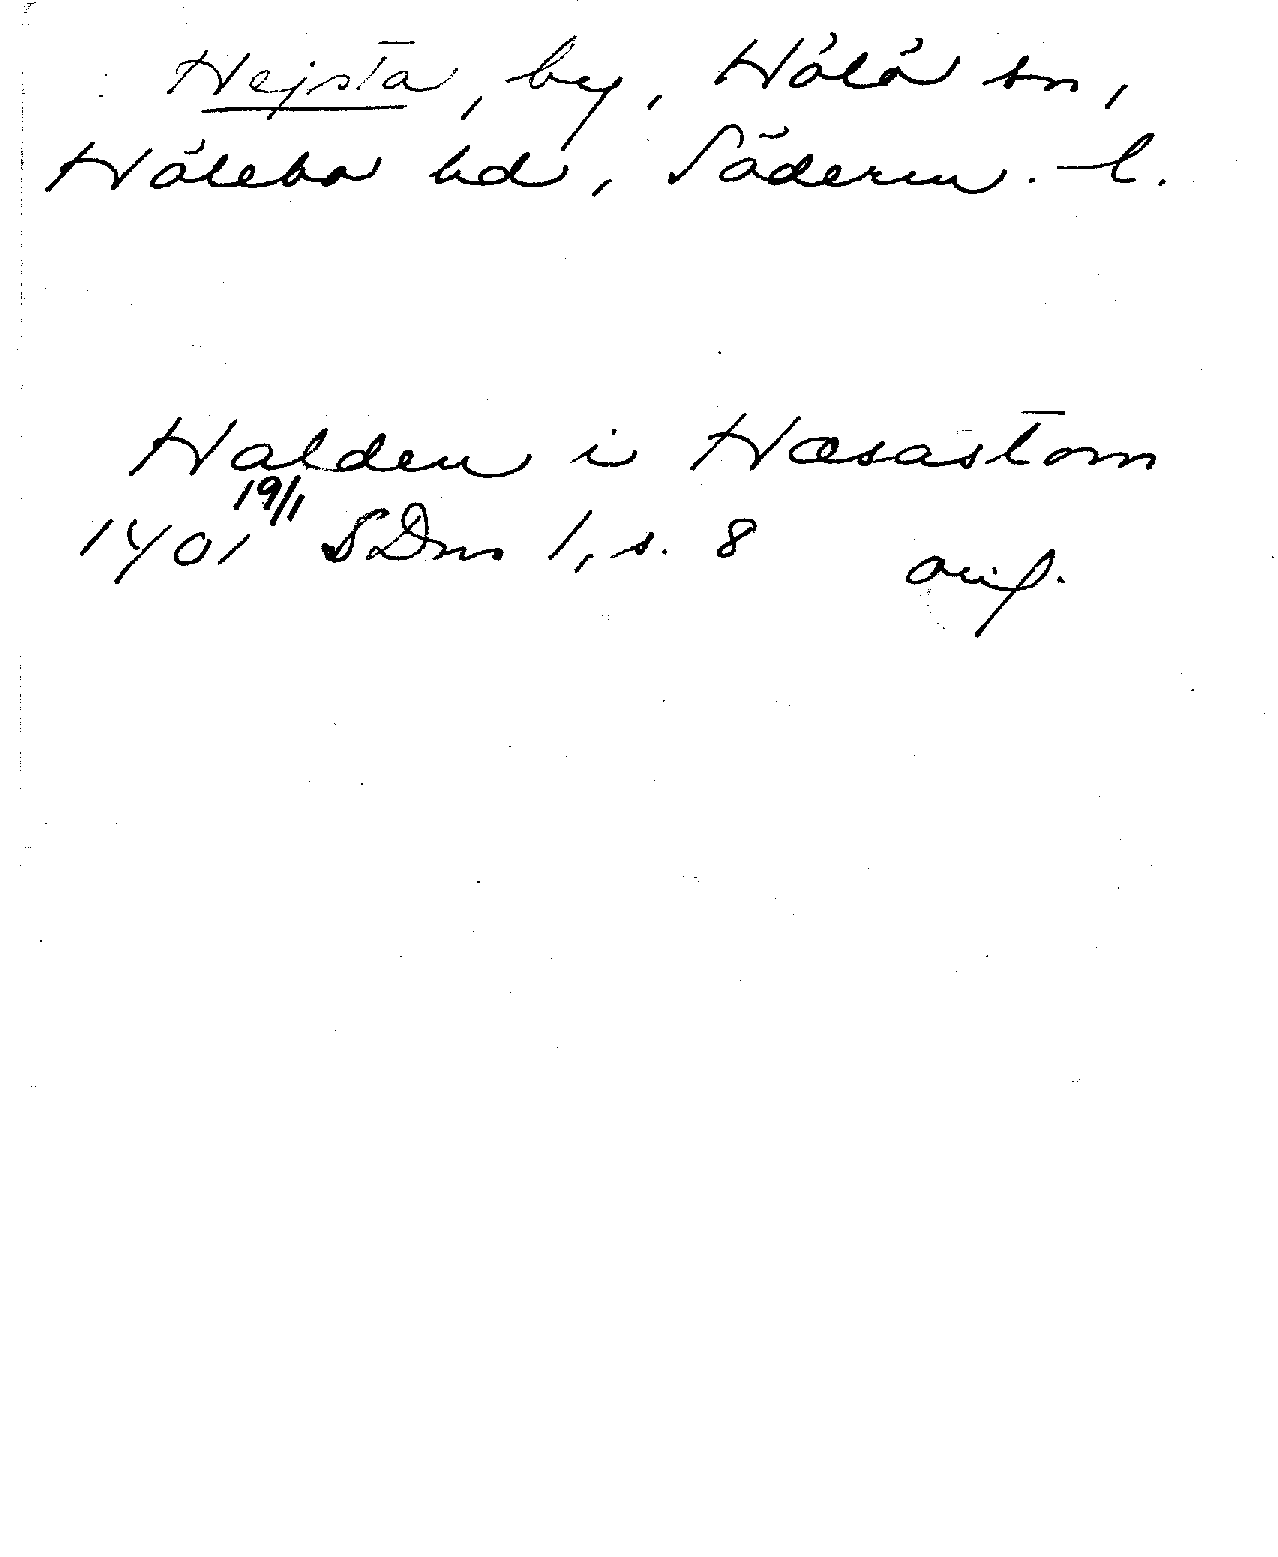 Hejsta, by, Hölö sn,
Hölebo hd, Söderm. l.
Halden i Hæsastom
19/1
1401 SDns 1, s. 8 orig.